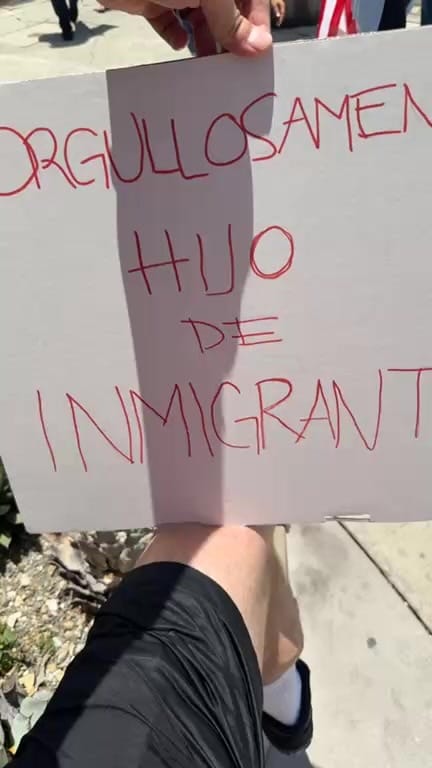 ORGULLOSAMEN
HIJO
DE
INMIGRANT